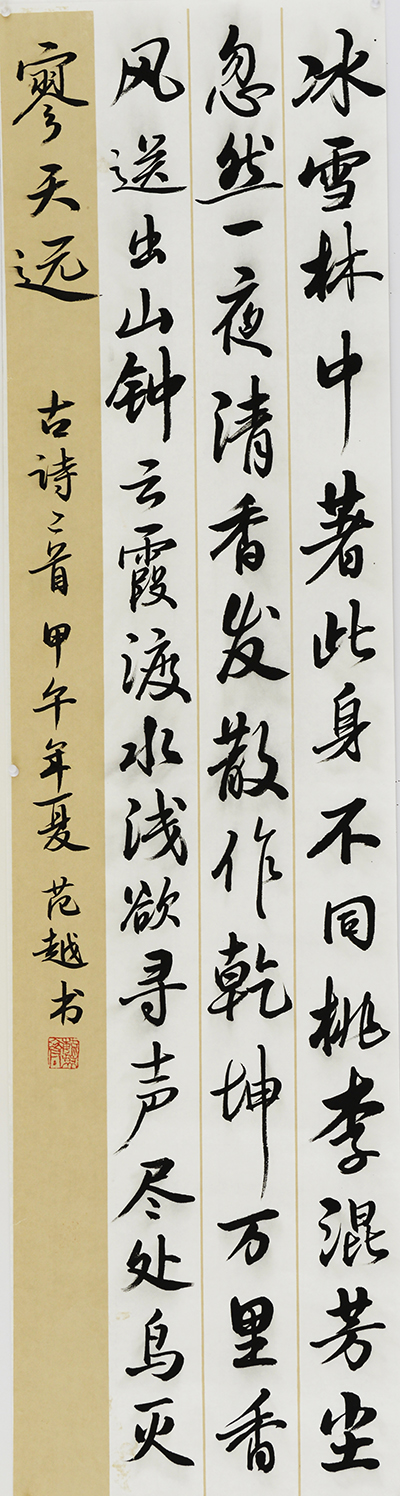 冰雪林中著此身不同桃李混芳尘
忽然一夜清香发散作乾坤万里香
风送出山钟云霞渡水浅欲寻声尽处鸟灭
寥天远
古诗二首 甲午年夏 范越书